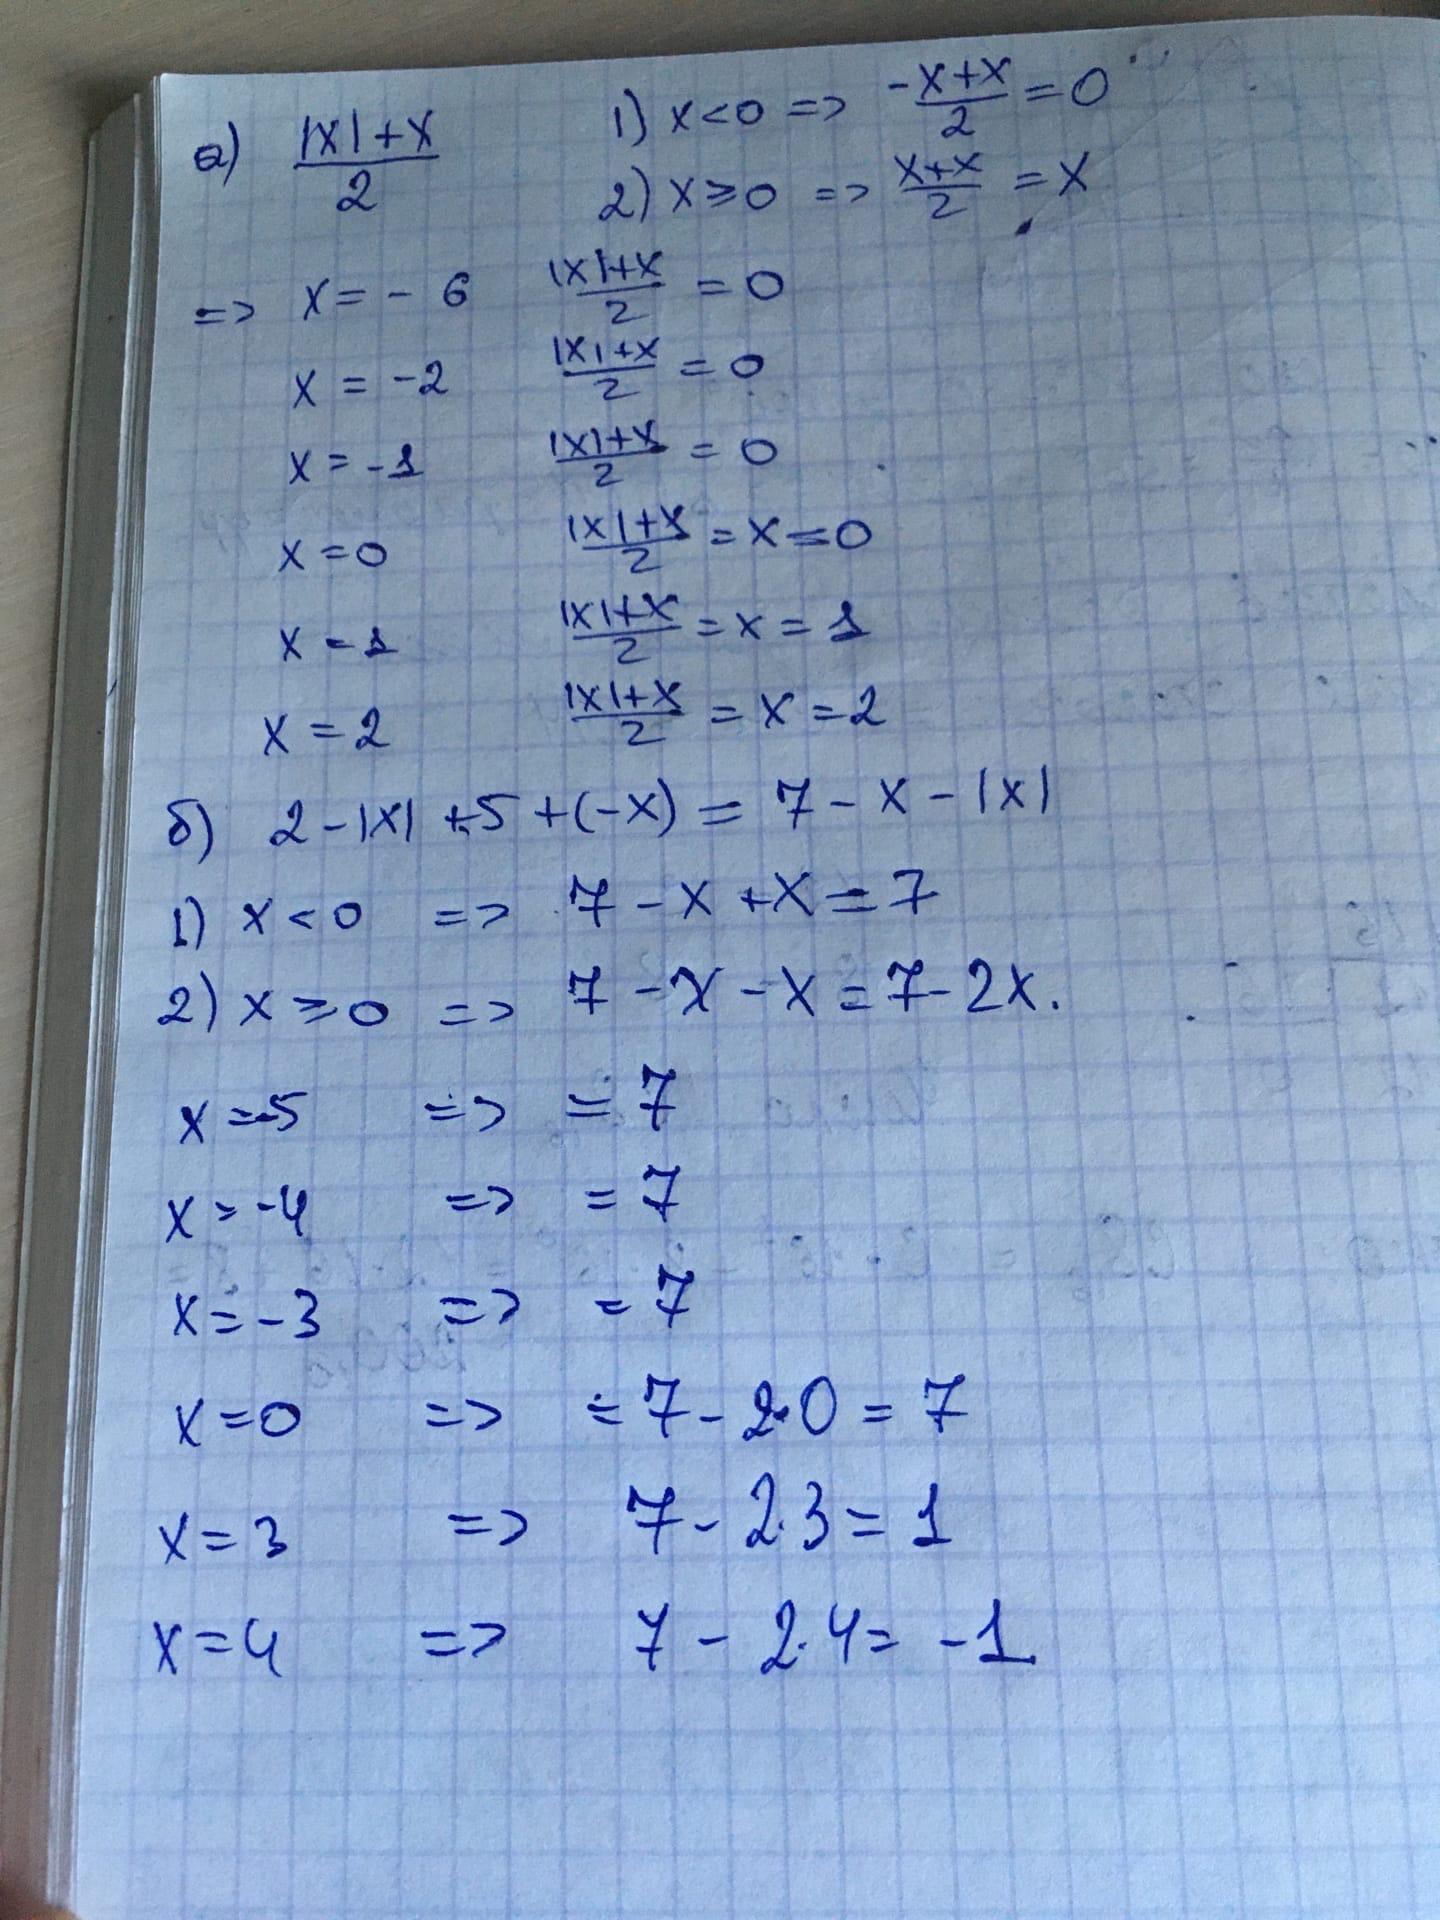 а) (|x|+x)/2   1) x<0 => (-x+x)/2 = 0
2) x≥0 => (x+x)/2 = x
=> x = -6   (|x|+x)/2 = 0
x = -2   (|x|+x)/2 = 0
x = -1   (|x|+x)/2 = 0
x = 0   (|x|+x)/2 = x = 0
x = 1   (|x|+x)/2 = x = 1
x = 2   (|x|+x)/2 = x = 2
б) 2-|x|+5+(-x) = 7-x-|x|
1) x<0 => 7-x+x=7
2) x≥0 => 7-x-x=7-2x.
x=-5 => =7
x=-4 => =7
x=-3 => =7
x=0 => =7-2·0=7
x=3 => 7-2·3=1
x=4 => 7-2·4=-1